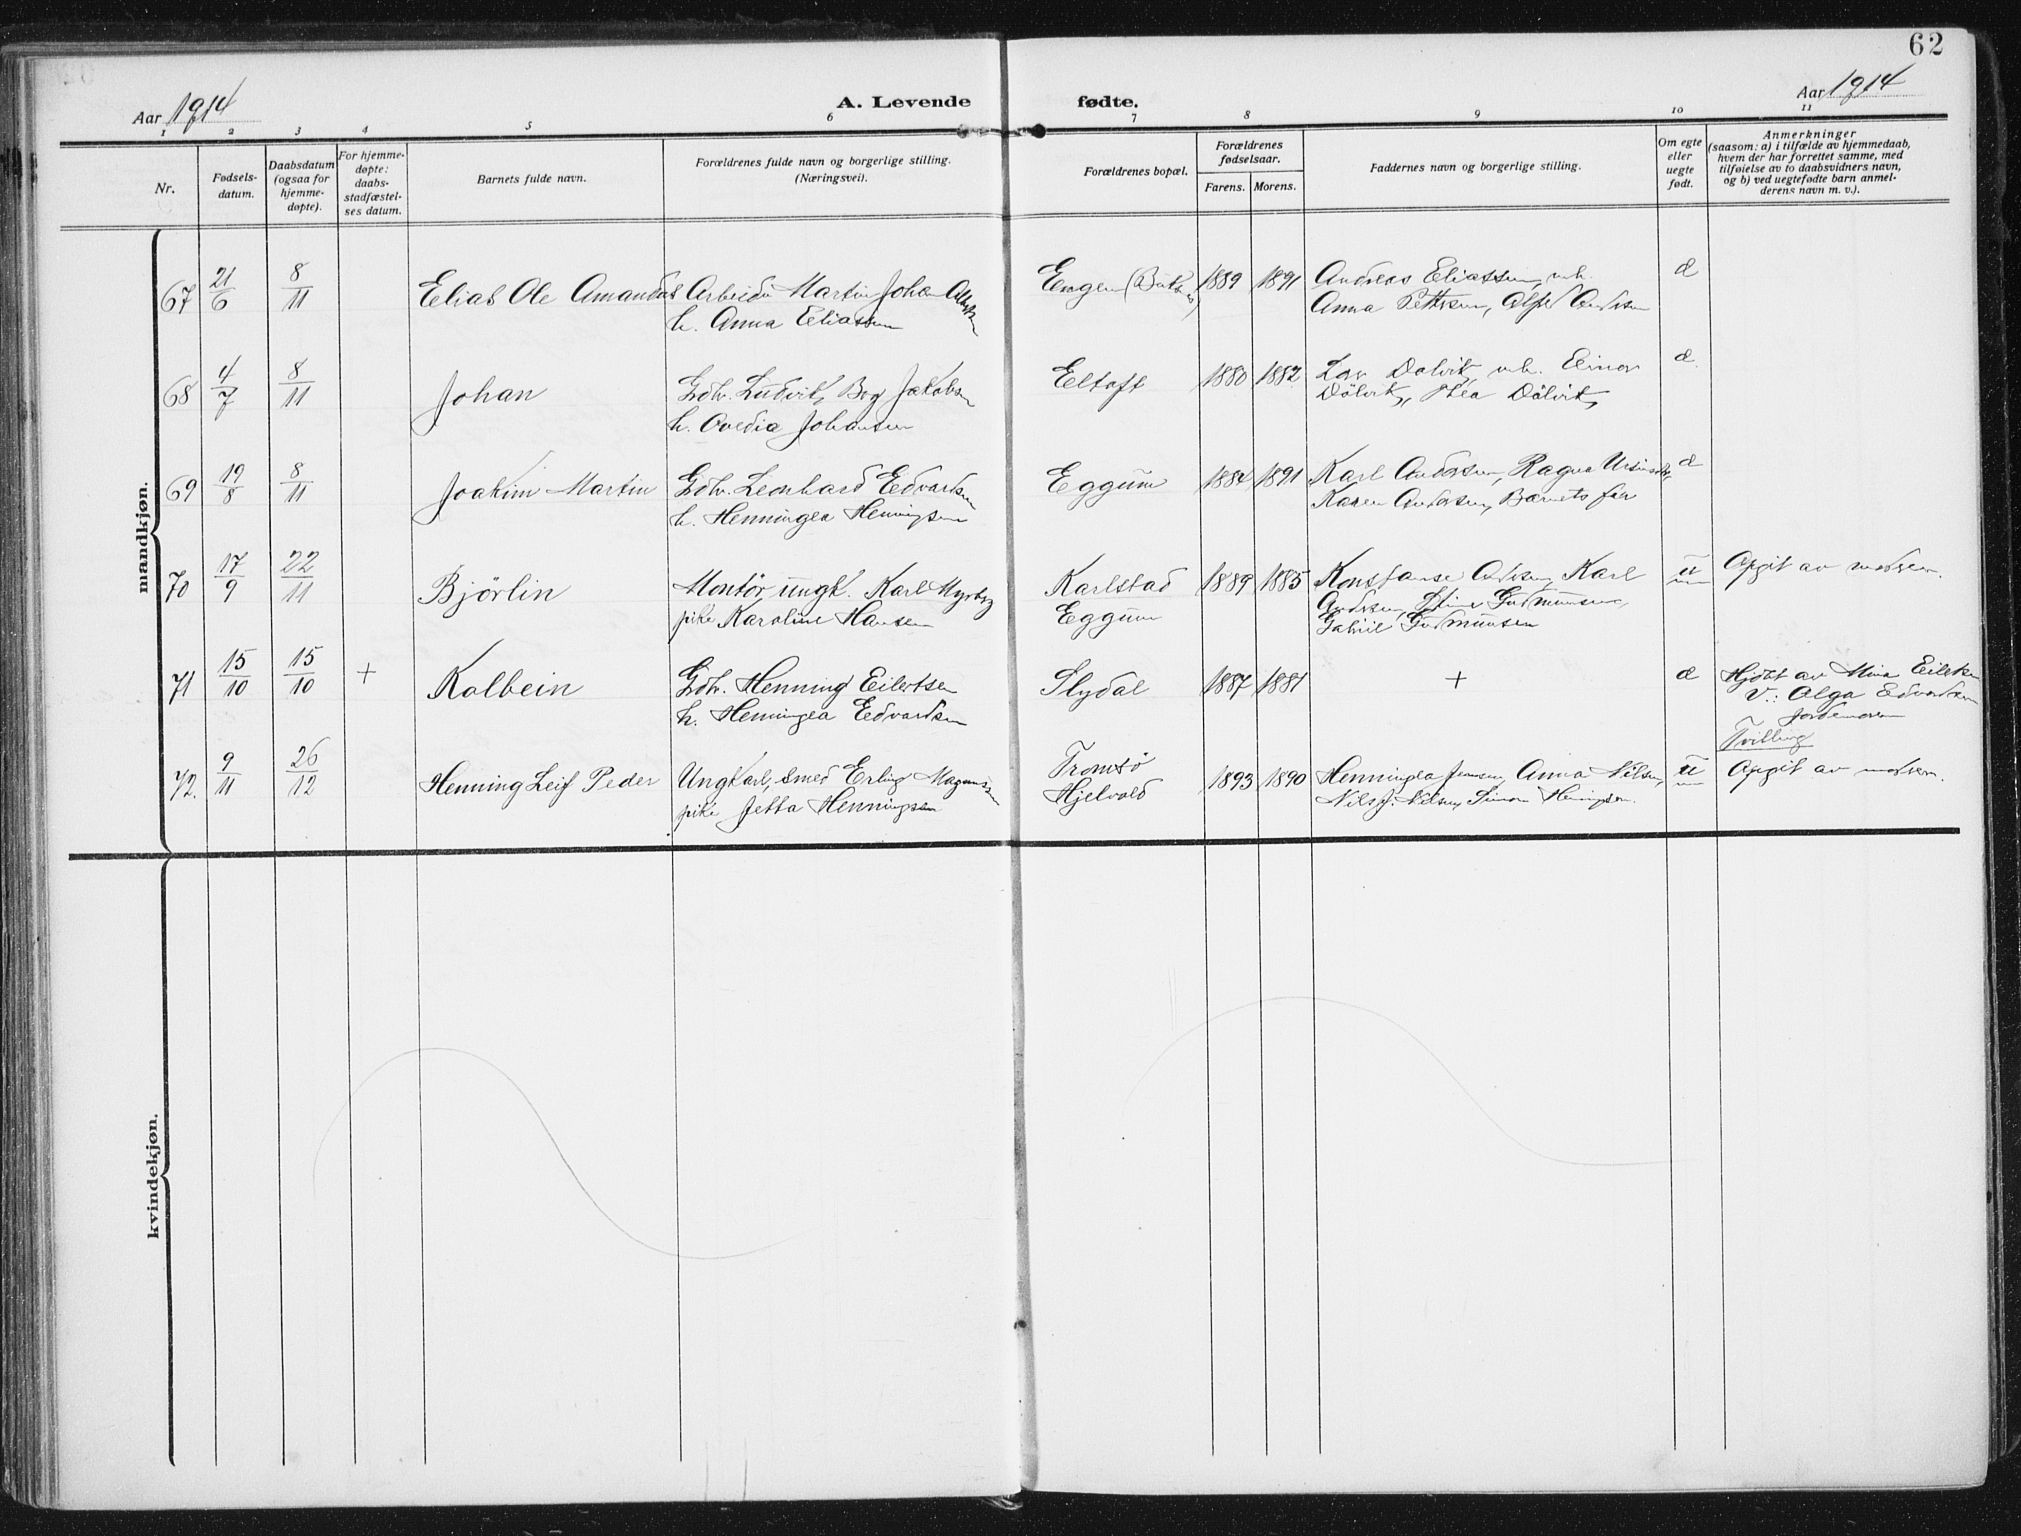 62
Aar 1914
A. Levende fødte.
Aar 1914
1 2 3 4 5 6 7 8 9 10 11
Nr.
Fødsels-
datum.
Daabsdatum
(ogsaa for
hjemme-
døpte).
For hjemme-
døpte:
daabs-
stadfæstel-
ses datum.
Barnets fulde navn.
Forældrenes fulde navn og borgerlige stilling.
(Næringsvei).
Forældrenes bopæl.
Forældrenes
fødselsaar.
Farens. Morens.
Faddernes navn og borgerlige stilling.
Om egte
eller
uegte
født.
Anmerkninger
(saasom: a) i tilfælde av hjemmedaab,
hvem der har forrettet samme, med
tilføielse av to daabsvidners navn,
og b) ved uegtefødte barn anmel-
derens navn m. v.).
mandkjøn.
67 21/6 8/11 Elias Ole Amandus Arbeider Martin Johan Engen 1889 1891 Andreas Eliassen, u.h. æ
h. Anna Eliassen Anna Pettersen,
68 4/7 8/11 Johan Gdbr. Ludvik Bog Jakobsen Eltoft 1880 1882 Dalvik u.h. Einar æ
h. Ovedia Johansen Dölvik, Thea Dölvik,
69 19/8 8/11 Joakim Martin Gdbr. Leonhard Edvardsen Eggum 1884 1891 Karl Andersen, Ragna æ
h. Henningea Henningsen Karen Andersen, Barnets far
70 17/9 22/11 Bjørlin Montör, ungk. Karl Myrberg Karlstad 1889 1885 Konstanse Andersen, Karl u Opgit av moderen.
pike Karoline Hansen Eggum Andersen, Stina Gudmunsen,
Gabriel Gudmunsen
71 15/10 15/10 + Kolbein Gdbr. Henning Eilertsen Slydal 1887 1881 + æ Hjdöt av Mina Eilertsen
h. Henningea Edvardsen V.: Olga Edvardsen
Jordemoren
Tvilling
72. 9/11 26/12 Henning Leif Peder Ungkarl, Smed Erling Magnussen Tromsö 1893 1890 Henningea Jensen, Anna Nilsen, u Opgit av moderen.
pike Jetta Henningsen Hjelvold Nils J. Nilsen, Simon Henningsen.
kvindekjøn.